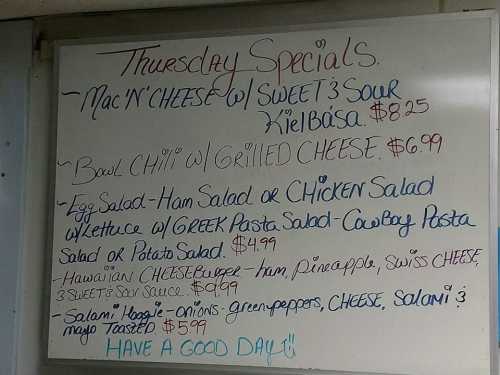 Thursday Specials.
- Mac 'N' CHEESE w/ SWEET & SOUR
Kielbasa. $8.25
- Bowl CHili w/ GRilled CHEESE. $6.99
- Egg Salad - Ham Salad or CHICKEN Salad
w/ Lettuce w/ GREEK Pasta Salad - CowBoy Pasta
Salad or Potato Salad. $4.99
- Hawaiian CHEESEBurger - ham, pineapple, SWISS CHEESE,
& SWEET & Sour Sauce. $9.99
- Salami Hoagie - onions - greenpeppers, CHEESE, Salami &
mayo Toasted. $5.99
HAVE A GOOD DAY!